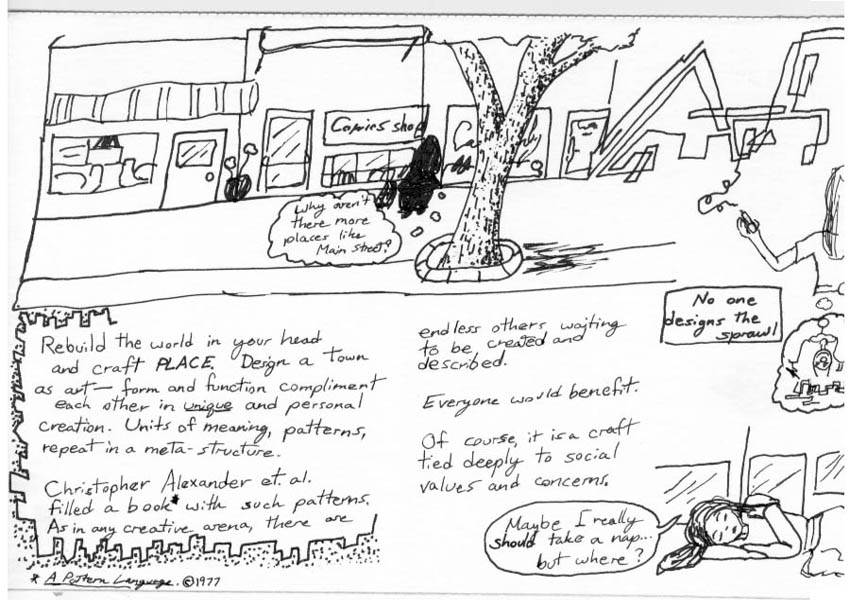 Comics shop
Why aren't
there more
places like
Main Street?
No one
designs the
sprawl
Rebuild the world in your head
and craft PLACE. Design a town
as art— form and function compliment
each other in unique and personal
creation. Units of meaning, patterns,
repeat in a meta-structure.
Christopher Alexander et. al.
filled a book* with such patterns.
As in any creative arena, there are
endless others waiting
to be created and
described.
Everyone would benefit.
Of course, it is a craft
tied deeply to social
values and concerns.
Maybe I really
should take a nap...
but where?
* A Pattern Language. ©1977